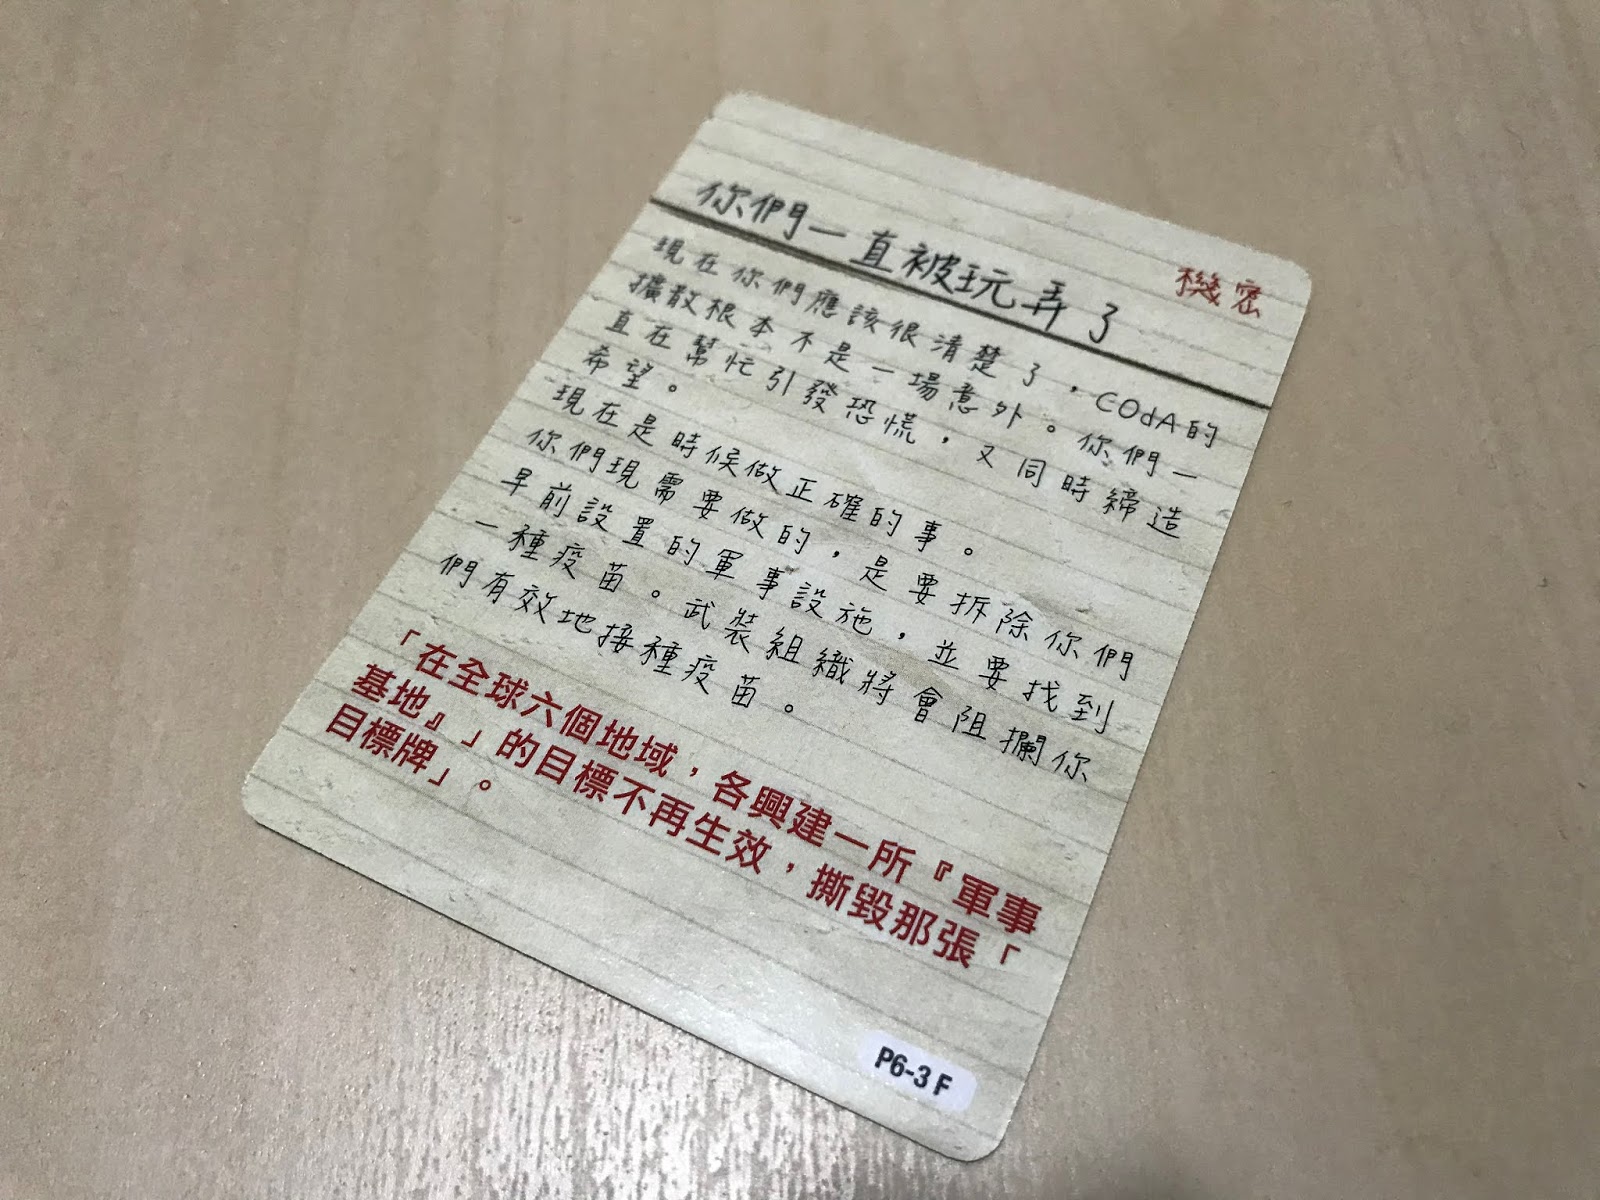 你們一直被玩弄了
機密
現在你們應該很清楚了，COdA的
擴散根本不是一場意外。你們一
直在幫忙引發恐慌，又同時締造
希望。
現在是時候做正確的事。
你們現需要做的，是要拆除你們
早前設置的軍事設施，並要找到
一種疫苗。武裝組織將會阻攔你
們有效地接種疫苗。
「在全球六個地域，各興建一所『軍事
基地』」的目標不再生效，撕毀那張「
目標牌」。
P6-3 F